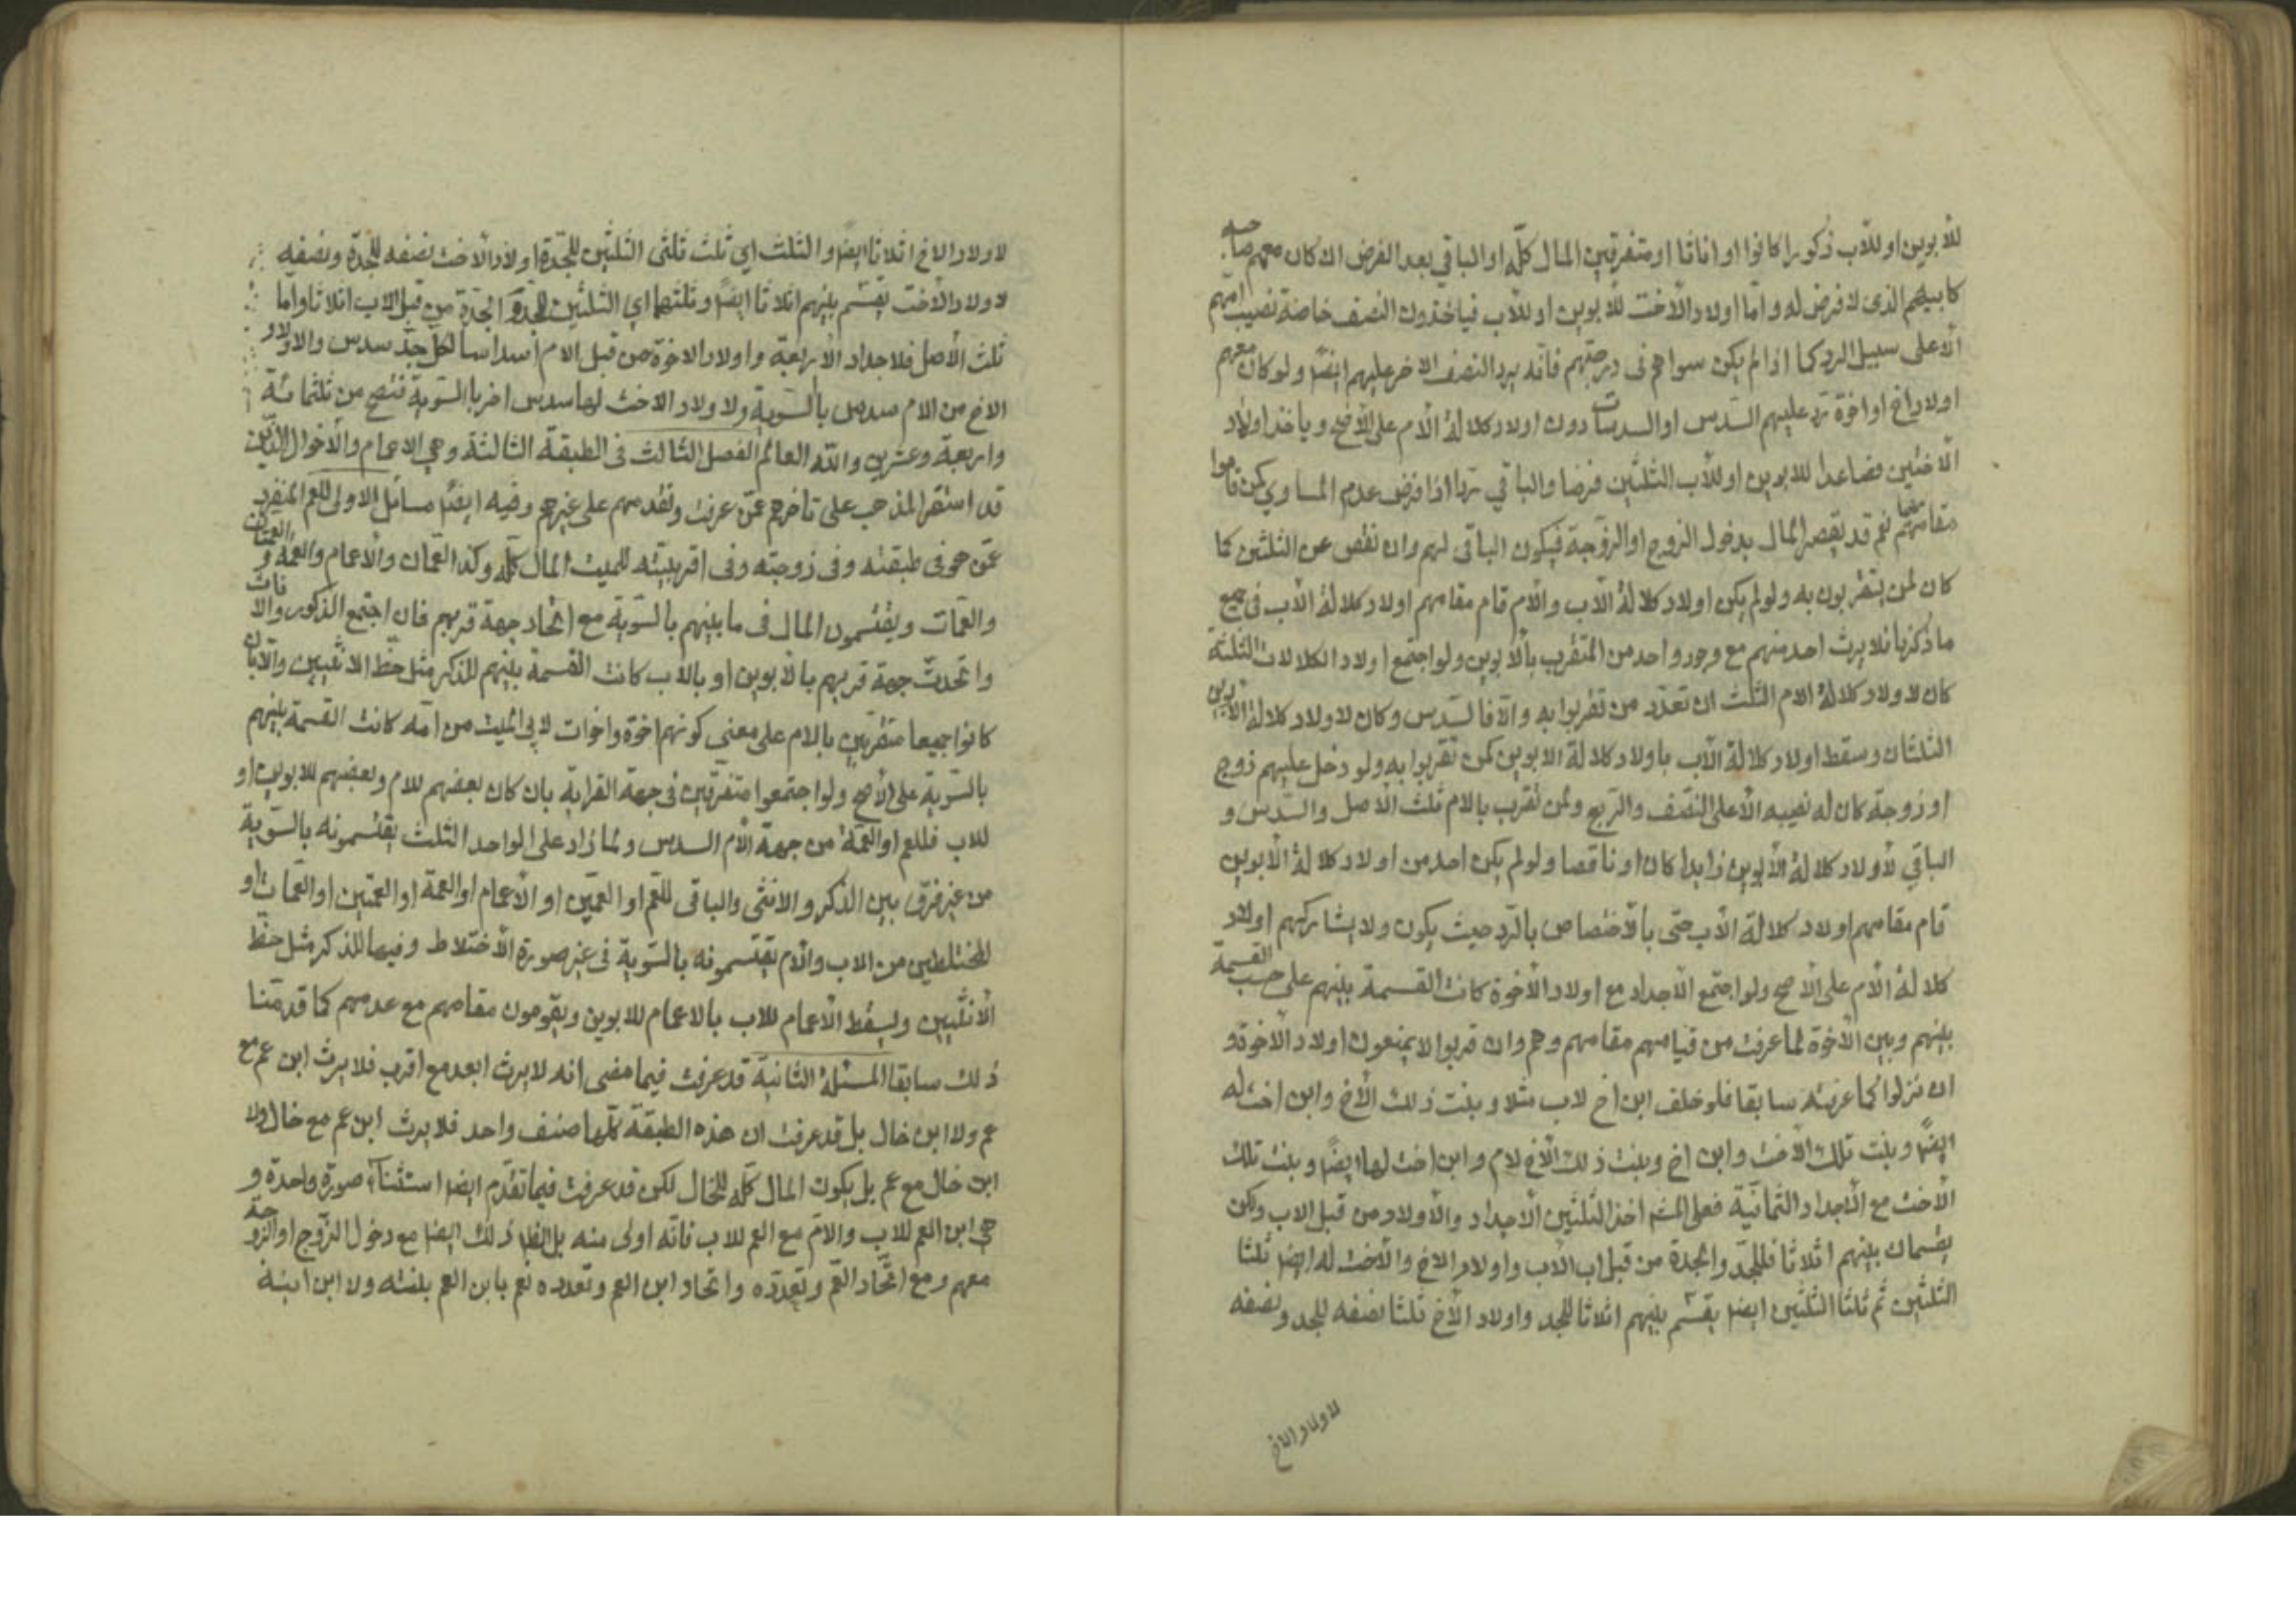 للأبوين او للأب ذكورا كانوا او اناثا او متفرقين المال كله او الباقي بعد الفرض ان كان معهم صاحبه
كابيهم الذى لا فرض له و اما اولاد الأخت للأبوين او للأب فياخذون النصف خاصة نصيب امهم
الا على سبيل الرد كما اذا لم يكن سواهم فى درجتهم فانه يرد النصف الاخر عليهم ايضا ولو كان معهم
اولاد اخ او اخوة رد عليهم السدس او السدسان دون اولاد كلالة الأم على الأصح و ياخذ اولاد
الأختين فصاعدا للابوين او للأب الثلثين فرضا والباقي ردا اذا فرض عدم المساوي كمن قاموا
مقامهم نعم قد يقصر المال بدخول الزوج او الزوجة فيكون الباقى لهم وان نقص عن الثلثين كما
كان لمن يتقربون به ولو لم يكن اولاد كلالة الأب والأم قام مقامهم اولاد كلالة الأب فى جميع
ما ذكرنا فلا يرث احد منهم مع وجود واحد من المتقرب بالأبوين ولو اجتمع اولاد الكلالات الثلثة
كان لاولاد كلالة الام الثلث ان تعدد من تقربوا به والا فالسدس وكان لاولاد كلالة الأبوين
الثلثان و سقط اولاد كلالة الأب باولاد كلالة الابوين كمن تقربوا به ولو دخل عليهم زوج
او زوجة كان له نصيبه الأعلى النصف والربع ولمن تقرب بالام ثلث الأصل والسدس و
الباقي لأولاد كلالة الأبوين زايدا كان او ناقصا ولو لم يكن احد من اولاد كلالة الأبوين
قام مقامهم اولاد كلالة الأب حتى بالأختصاص بالرد حيث يكون ولا يشاركهم اولاد
كلالة الأم على الأصح ولو اجتمع الأجداد مع اولاد الأخوة كانت القسمة بينهم على حسب القسمة
بينهم وبين الأخوة لما عرفت من قيامهم مقامهم وهم وان قربوا لا يمنعون اولاد الأخوة و
ان نزلوا كما عرفته سابقا فلو خلف ابن اخ لاب مثلا و بنت ذلك الأخ وابن اخت له
ايضا و بنت تلك الأخت وابن اخ و بنت ذلك الأخ لام و ابن اخت لها ايضا و بنت تلك
الأخت مع الأجداد الثمانية فعلى المشهـ اخذ الثلثين الأجداد والأولاد من قبل الاب ولكن
يقسمان بينهم اثلاثا فللجد والجدة من قبل اب الأب واولاد الاخ والأخت له ايضا ثلثا
الثلثين ثم ثلثا الثلثين ايضا يقسم بينهم اثلاثا للجد واولاد الأخ ثلثا نصفه للجد و نصفه
لاولاد الاخ
لاولاد الاخ اثلاثا ايضا والثلث اي ثلث ثلثى الثلثين للجدة اولاد الأخت نصفه للجدة و نصفه
لاولاد الأخت يقسم بينهم اثلاثا ايضا و ثلثهما اي الثلثين للجد و الجدة من قبل الاب اثلاثا واما
ثلث الأصل فلاجداد الأربعة واولاد الاخوة من قبل الام اسداسا لكل جد سدس والاولاد
الاخ من الام سدس بالسوية ولاولاد الاخت لها سدس اخر بالسوية فتصح من ثلثمائة
واربعة وعشرين والله العالم الفصل الثالث فى الطبقة الثالثة وهى الاعمام والأخوال الذين
قد استقر المذهب على تأخرهم عمن عرفت وتقدمهم على غيرهم وفيه ايضا مسائل الاولى للعم المنفرد
عمن هو فى طبقته وفى زوجته وفى اقربيته للميت المال كله وكذا العمان والأعمام والعمة و العمتان
والعمات ويقتسمون المال فى ما بينهم بالسوية مع اتحاد جهة قربهم فان اجتمع الذكور والاناث
واتحدت جهة قربهم بالأبوين او بالاب كانت القسمة بينهم للذكر مثل حظ الانثيين والا بان
كانوا جميعا متقربين بالام على معنى كونهم اخوة واخوات لابى الميت من امه كانت القسمة بينهم
بالسوية على الأصح ولو اجتمعوا متفرقين فى جهة القرابة بان كان بعضهم للام وبعضهم للابوين او
للاب فللعم او العمة من جهة الأم السدس ولما زاد على الواحد الثلث يقتسمونه بالسوية
من غير فرق بين الذكر والانثى والباقى للعم او العمين او الأعمام او العمة او العمتين او العمات او
للمختلطين من الاب والأم يقتسمونه بالسوية فى غير صورة الأختلاط وفيها للذكر مثل حظ
الأنثيين ويسقط الأعمام للاب بالاعمام للابوين ويقومون مقامهم مع عدمهم كما قدمنا
ذلك سابقا المسئلة الثانية قد عرفت فيما مضى انه لا يرث ابعد مع اقرب فلا يرث ابن عم مع
عم ولا ابن خال بل قد عرفت ان هذه الطبقة كلها صنف واحد فلا يرث ابن عم مع خال ولا
ابن خال مع عم بل يكون المال كله للخال لكن قد عرفت فيما تقدم ايضا استثناء صورة واحدة و
هى ابن العم للاب والام مع العم للاب فانه اولى منه بل الظ ذلك ايضا مع دخول الزوج او الزوجة
معهم ومع اتحاد العم وتعدده واتحاد ابن العم وتعدده نعم بابن العم بنته ولا ابن ابنه